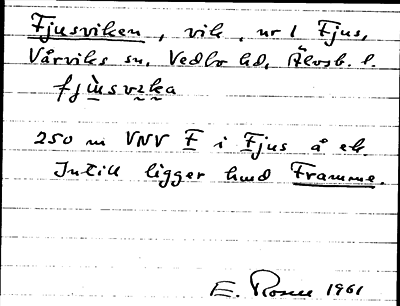 Fjusviken, vik, nr 1 Fjus,
Vårviks sn, Vedbo hd, Älvsb. l.
fjùsvika
250 m VNV F i Fjus å ek.
Intill ligger hmd Framme.
E. Rosell 1961